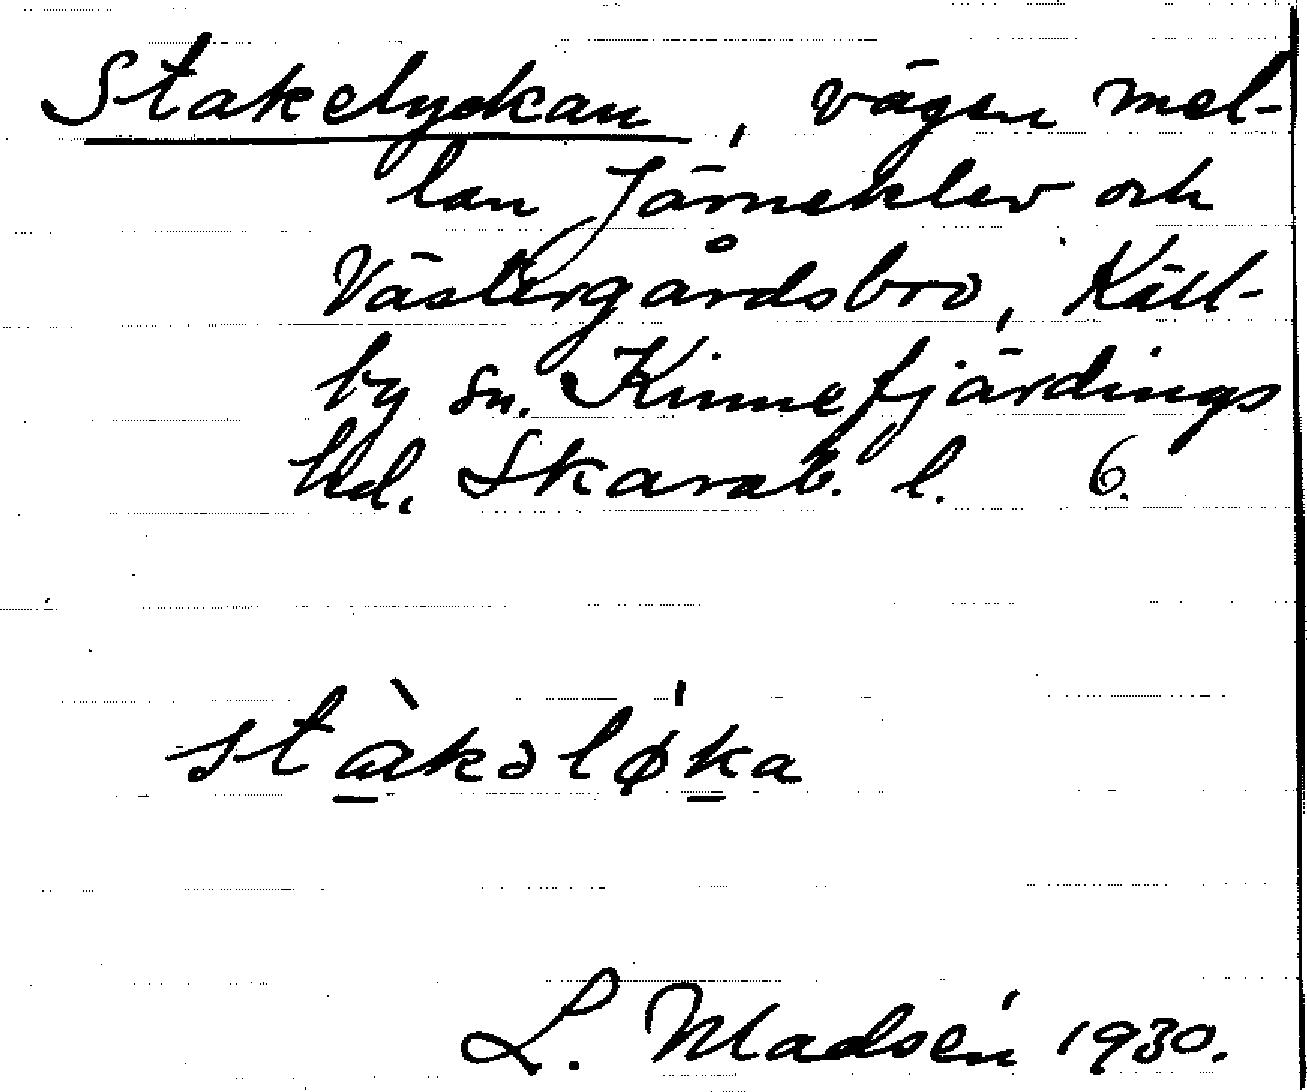 Stakelyckan, vägen mel-
lan Järneklev och
Västergårdsbro, Käll-
by sn. Kinnefjärdings
hd. Skarab. l. 6.
stàkəlø̍ka
L. Madsén 1930.